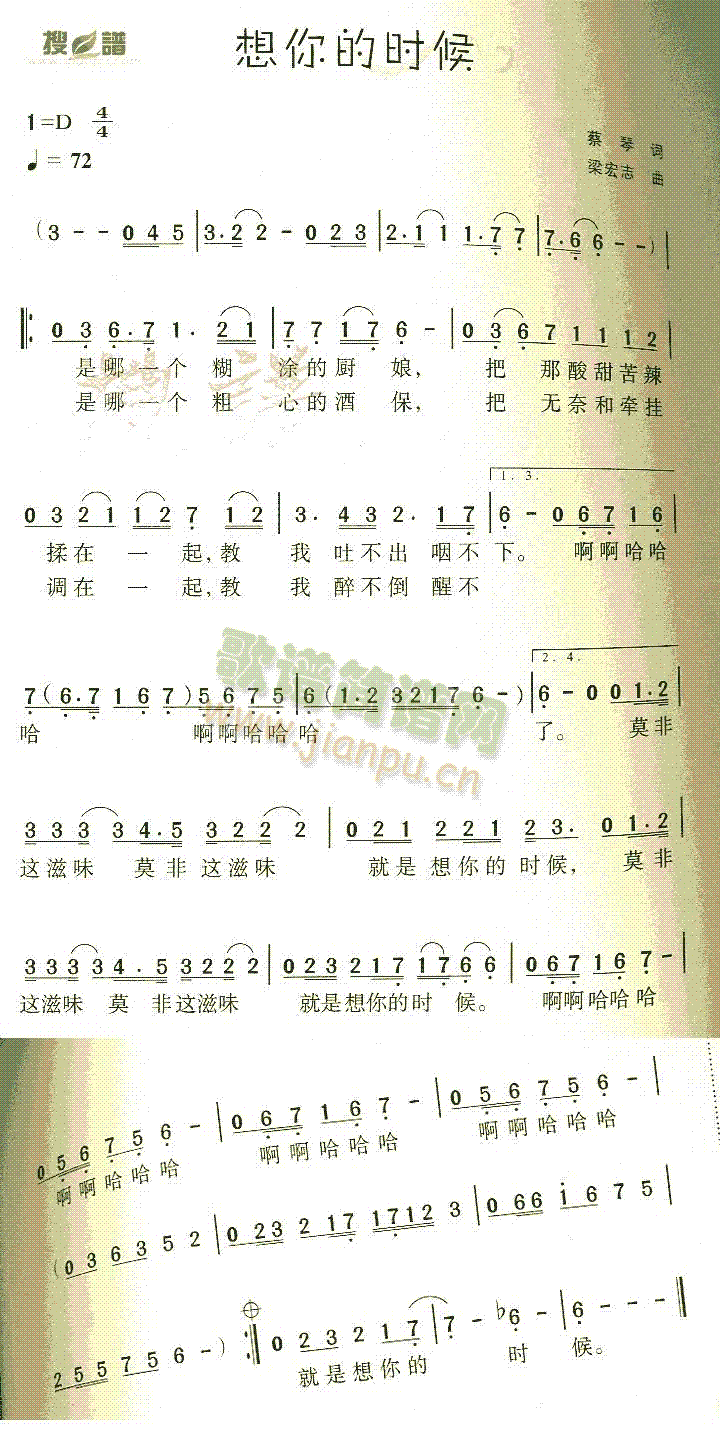 搜谱
想你的时候
1=D 4/4
♩= 72
蔡 琴 词
梁宏志 曲
(3 - - 0 4 5 | 3.2 2 - 0 2 3 | 2.1 1 1.7 7 | 7.6 6 - - ) |
0 3 6.7 1. 2 1 | 7 7 1 7 6 - | 0 3 6 7 1 1 1 2
是哪一个 糊 涂的厨 娘， 把 那酸甜苦辣
是哪一个 粗 心的酒 保， 把 无奈和牵挂
1. 3.
0 3 2 1 1 2 7 1 2 | 3. 4 3 2. 1 7 | 6 - 0 6 7 1 6
揉在 一 起，教 我 吐不出 咽不 下。 啊啊哈哈
调在 一 起，教 我 醉不倒 醒不
歌谱简谱网
www.jianpu.cn
2. 4.
7 (6.7 1 6 7) 5 6 7 5 | 6 (1.2 3 2 1 7 6 -) | 6 - 0 0 1.2
哈 啊啊哈哈 哈 了。 莫非
3 3 3 3 4.5 3 2 2 2 | 0 2 1 2 2 1 2 3. 0 1.2
这滋味 莫 非 这滋味 就是 想你的 时候， 莫非
3 3 3 3 4.5 3 2 2 2 | 0 2 3 2 1 7 1 7 6 6 | 0 6 7 1 6 7 -
这滋味 莫 非这滋味 就是想你的时 候。 啊啊哈哈哈
0 5 6 7 5 6 - | 0 6 7 1 6 7 - | 0 5 6 7 5 6 - |
啊啊哈哈哈 啊啊哈哈哈 啊啊哈哈哈
(0 3 6 3 5 2 | 0 2 3 2 1 7 1 7 1 2 3 | 0 6 6 i 6 7 5 |
2 5 5 7 5 6 - ) 0 2 3 2 1 7 | 7 - ♭6 - | 6 - - -
就是想你的 时 候。